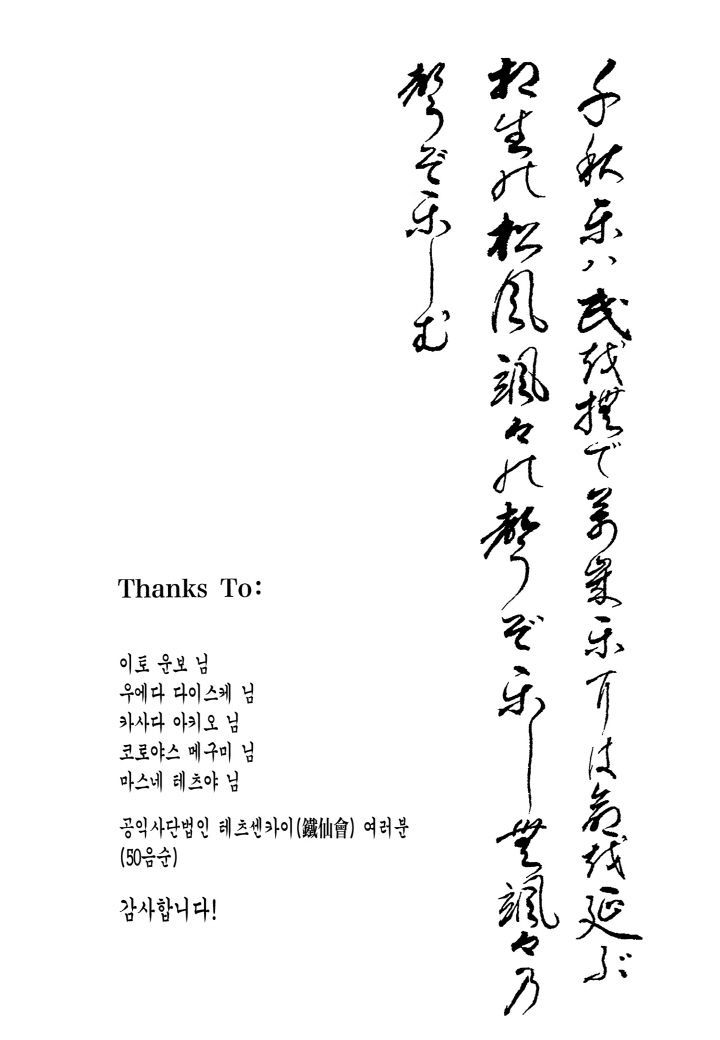 千秋楽ハ民越撫で萬歳楽耳は命越延ぶ
相生能松風颯々能聲ぞ楽し無颯々乃
聲ぞ楽しむ
Thanks To:
이토 운보 님
우에다 다이스케 님
카사다 아키오 님
코로야스 메구미 님
마스네 테츠야 님
공익사단법인 테츠센카이(鐵仙會) 여러분
(50음순)
감사합니다!